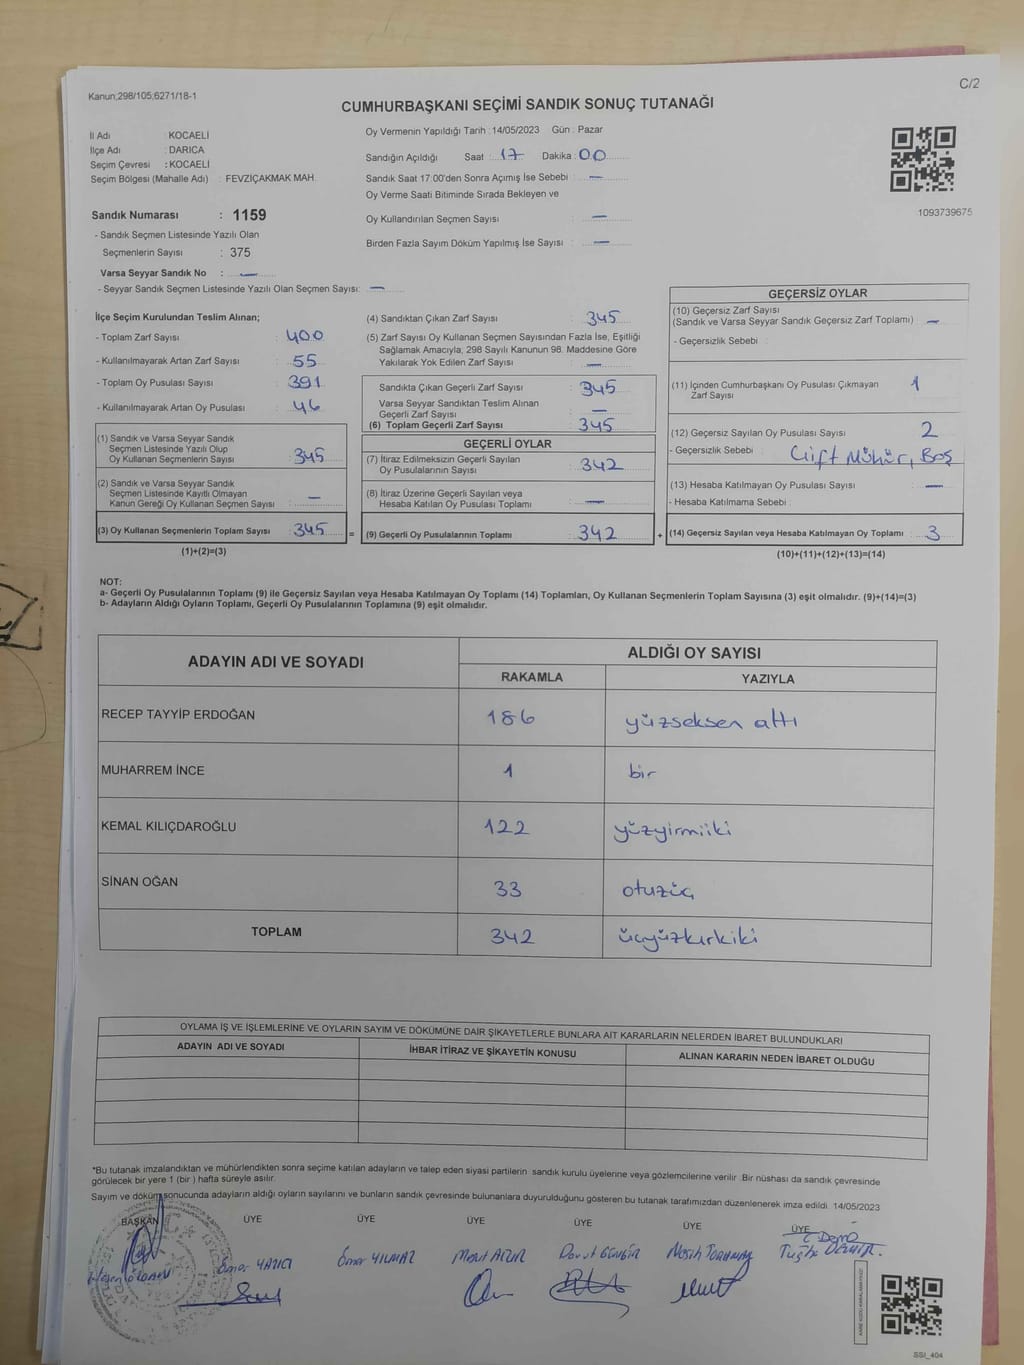 Kanun;298/105;6271/18-1
C/2
CUMHURBAŞKANI SEÇİMİ SANDIK SONUÇ TUTANAĞI
İl Adı : KOCAELİ
İlçe Adı : DARICA
Seçim Çevresi : KOCAELİ
Seçim Bölgesi (Mahalle Adı) : FEVZİÇAKMAK MAH.
Oy Vermenin Yapıldığı Tarih : 14/05/2023 Gün : Pazar
Sandığın Açıldığı Saat : 17 Dakika : 00
Sandık Saat 17:00'den Sonra Açımış İse Sebebi : —
Oy Verme Saati Bitiminde Sırada Bekleyen ve
Oy Kullandırılan Seçmen Sayısı : —
Birden Fazla Sayım Döküm Yapılmış İse Sayısı : —
1093739675
Sandık Numarası : 1159
- Sandık Seçmen Listesinde Yazılı Olan
Seçmenlerin Sayısı : 375
Varsa Seyyar Sandık No : —
- Seyyar Sandık Seçmen Listesinde Yazılı Olan Seçmen Sayısı: —
İlçe Seçim Kurulundan Teslim Alınan;
- Toplam Zarf Sayısı : 400
- Kullanılmayarak Artan Zarf Sayısı : 55
- Toplam Oy Pusulası Sayısı : 391
- Kullanılmayarak Artan Oy Pusulası : 46
(1) Sandık ve Varsa Seyyar Sandık
Seçmen Listesinde Yazılı Olup
Oy Kullanan Seçmenlerin Sayısı : 345
(2) Sandık ve Varsa Seyyar Sandık
Seçmen Listesinde Kayıtlı Olmayan
Kanun Gereği Oy Kullanan Seçmen Sayısı : —
(3) Oy Kullanan Seçmenlerin Toplam Sayısı : 345
(1)+(2)=(3)
(4) Sandıktan Çıkan Zarf Sayısı : 345
(5) Zarf Sayısı Oy Kullanan Seçmen Sayısından Fazla İse, Eşitliği
Sağlamak Amacıyla, 298 Sayılı Kanunun 98. Maddesine Göre
Yakılarak Yok Edilen Zarf Sayısı : —
Sandıkta Çıkan Geçerli Zarf Sayısı : 345
Varsa Seyyar Sandıktan Teslim Alınan
Geçerli Zarf Sayısı : —
(6) Toplam Geçerli Zarf Sayısı : 345
GEÇERLİ OYLAR
(7) İtiraz Edilmeksizin Geçerli Sayılan
Oy Pusulalarının Sayısı : 342
(8) İtiraz Üzerine Geçerli Sayılan veya
Hesaba Katılan Oy Pusulası Toplamı : —
= (9) Geçerli Oy Pusulalarının Toplamı : 342
GEÇERSİZ OYLAR
(10) Geçersiz Zarf Sayısı
(Sandık ve Varsa Seyyar Sandık Geçersiz Zarf Toplamı) : —
- Geçersizlik Sebebi :
(11) İçinden Cumhurbaşkanı Oy Pusulası Çıkmayan
Zarf Sayısı : 1
(12) Geçersiz Sayılan Oy Pusulası Sayısı : 2
- Geçersizlik Sebebi : Çift Mühür, Boş
(13) Hesaba Katılmayan Oy Pusulası Sayısı : —
- Hesaba Katılmama Sebebi :
+ (14) Geçersiz Sayılan veya Hesaba Katılmayan Oy Toplamı : 3
(10)+(11)+(12)+(13)=(14)
NOT:
a- Geçerli Oy Pusulalarının Toplamı (9) ile Geçersiz Sayılan veya Hesaba Katılmayan Oy Toplamı (14) Toplamları, Oy Kullanan Seçmenlerin Toplam Sayısına (3) eşit olmalıdır. (9)+(14)=(3)
b- Adayların Aldığı Oyların Toplamı, Geçerli Oy Pusulalarının Toplamına (9) eşit olmalıdır.
ADAYIN ADI VE SOYADI
ALDIĞI OY SAYISI
RAKAMLA YAZIYLA
RECEP TAYYİP ERDOĞAN 186 yüzseksen altı
MUHARREM İNCE 1 bir
KEMAL KILIÇDAROĞLU 122 yüzyirmiiki
SİNAN OĞAN 33 otuzüç
TOPLAM 342 üçyüzkırkiki
OYLAMA İŞ VE İŞLEMLERİNE VE OYLARIN SAYIM VE DÖKÜMÜNE DAİR ŞİKAYETLERLE BUNLARA AİT KARARLARIN NELERDEN İBARET BULUNDUKLARI
ADAYIN ADI VE SOYADI İHBAR İTİRAZ VE ŞİKAYETİN KONUSU ALINAN KARARIN NEDEN İBARET OLDUĞU
*Bu tutanak imzalandıktan ve mühürlendikten sonra seçime katılan adayların ve talep eden siyasi partilerin sandık kurulu üyelerine veya gözlemcilerine verilir. Bir nüshası da sandık çevresinde
görülecek bir yere 1 (bir ) hafta süreyle asılır.
Sayım ve döküm sonucunda adayların aldığı oyların sayılarını ve bunların sandık çevresinde bulunanlara duyurulduğunu gösteren bu tutanak tarafımızdan düzenlenerek imza edildi. 14/05/2023
BAŞKAN ÜYE ÜYE ÜYE ÜYE ÜYE ÜYE
Ömer YAZICI Ömer YILMAZ Mesut ACUR Davut GÜNGÖR Tuğba DEMİR
SSI_404